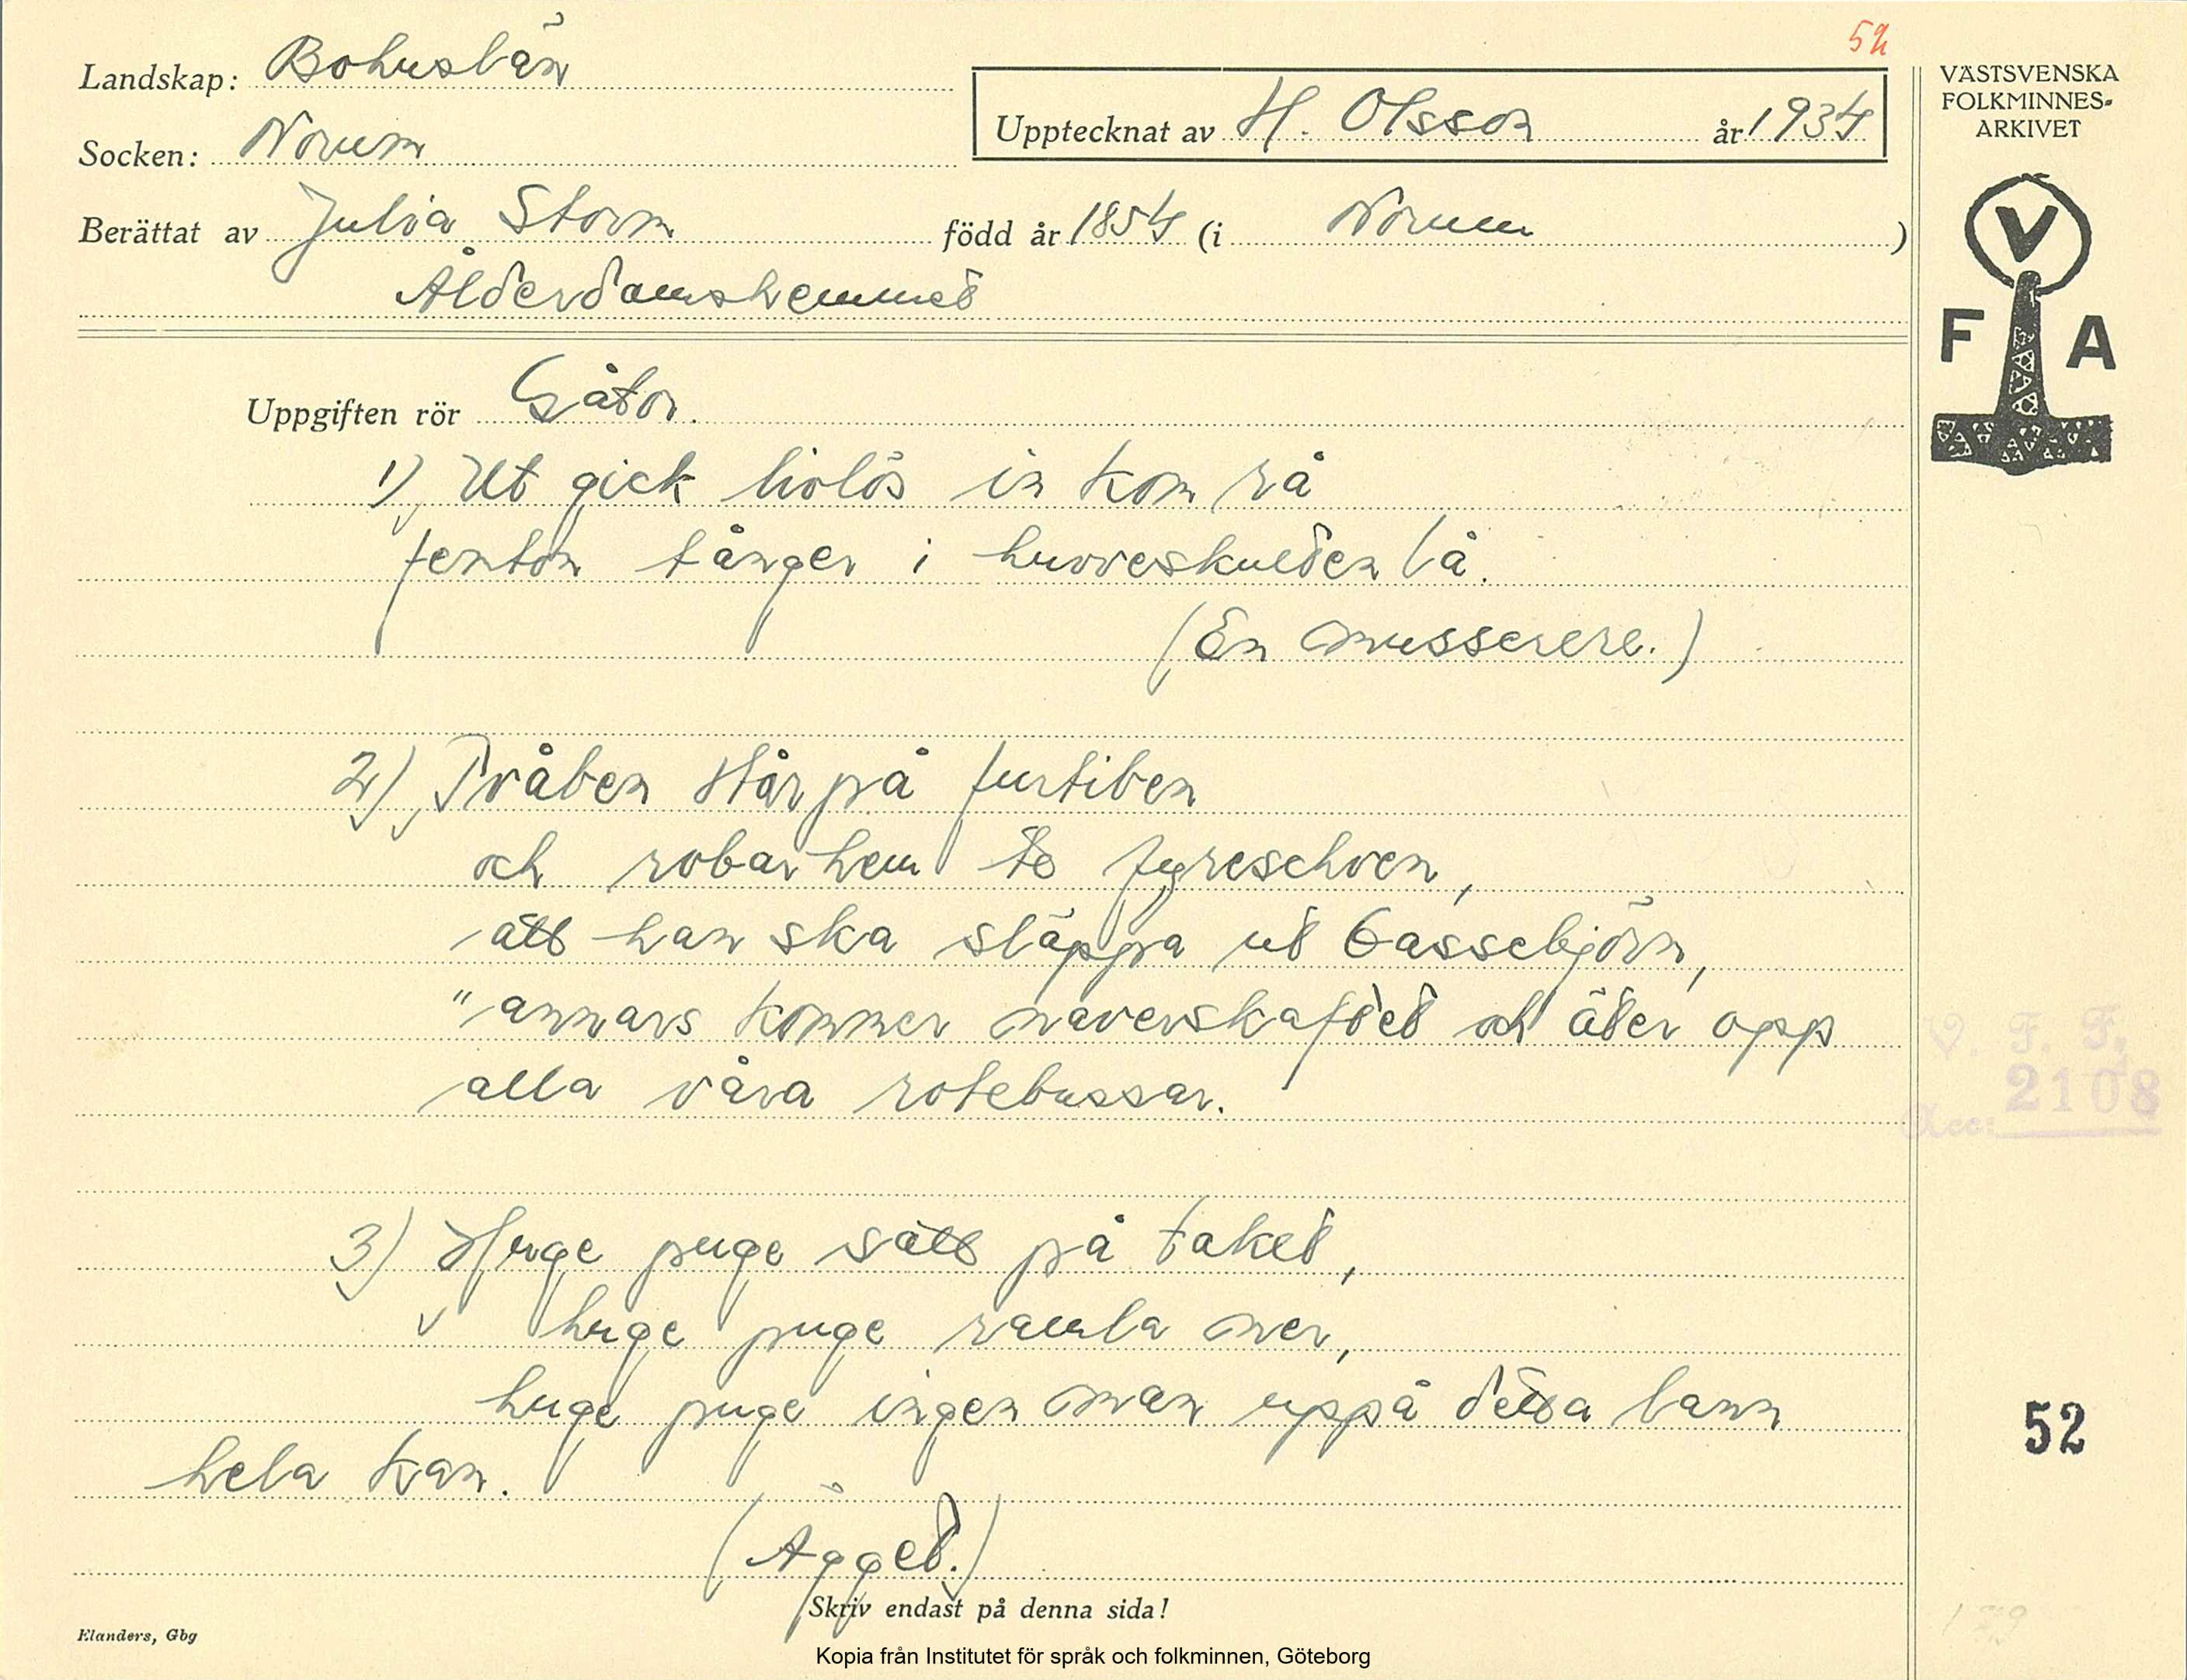 52
Landskap: Bohuslän
Socken: Norum
Upptecknat av H. Olsson år 1934
Berättat av Julia Storm född år 1854 (i Norum)
Ålderdomshemmet
VÄSTSVENSKA
FOLKMINNES-
ARKIVET
V
F A
Uppgiften rör Gåtor.
1) Ut gick livlös in kom rå
femton tånger i huvveskuelden lå.
(En musserere.)
2) Tvåben står på furtiben
och robar hem te fyreschven,
att han ska släppa ut bassebjörn,
"annars kommer naverskaftet och äter opp
alla våra rotebussar.
V. F. F.
Acc: 2108
3) Huge puge satt på taket,
huge puge ramla ner,
huge puge ingen man uppå detta lann
hela kan.
(Ägget.)
52
Skriv endast på denna sida!
Elanders, Gbg
Kopia från Institutet för språk och folkminnen, Göteborg